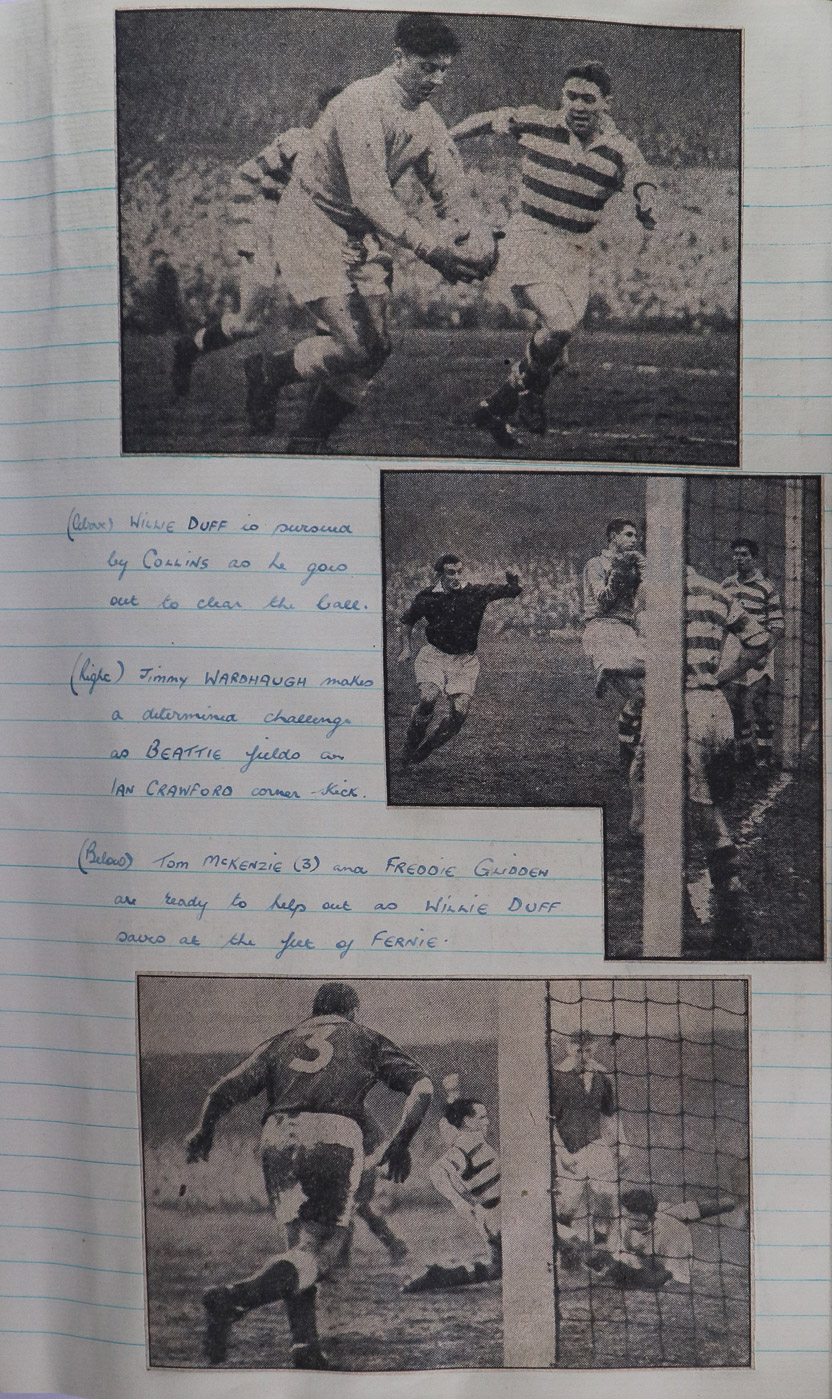 (Above) WILLIE DUFF is pursued
by COLLINS as he goes
out to clear the ball.
(Right) Jimmy WARDHAUGH makes
a determined challenge
as BEATTIE fields an
IAN CRAWFORD corner-kick.
(Below) Tom McKENZIE (3) and FREDDIE GLIDDEN
are ready to help out as WILLIE DUFF
saves at the feet of FERNIE.
3